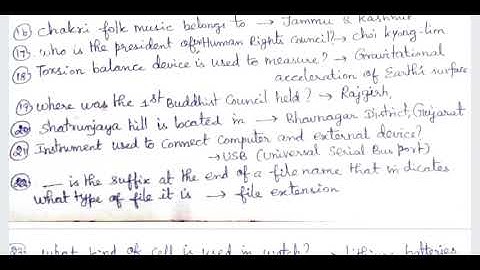 (16) Chakri folk music belongs to → Jammu & Kashmir
(17) Who is the president of Human Rights Council? → choi kyong-lim
(18) Torsion balance device is used to measure? → Gravitational
acceleration of Earth's surface
(19) where was the 1st Buddhist Council held? → Rajgirh,
(20) Shatrunjaya hill is located in → Bhavnagar District, Gujarat
(21) Instrument used to connect Computer and external device?
→ USB (Universal Serial Bus port)
(22) __ is the suffix at the end of a file name that indicates
what type of file it is → file extension
what kind of cell is used in watch? → batteries